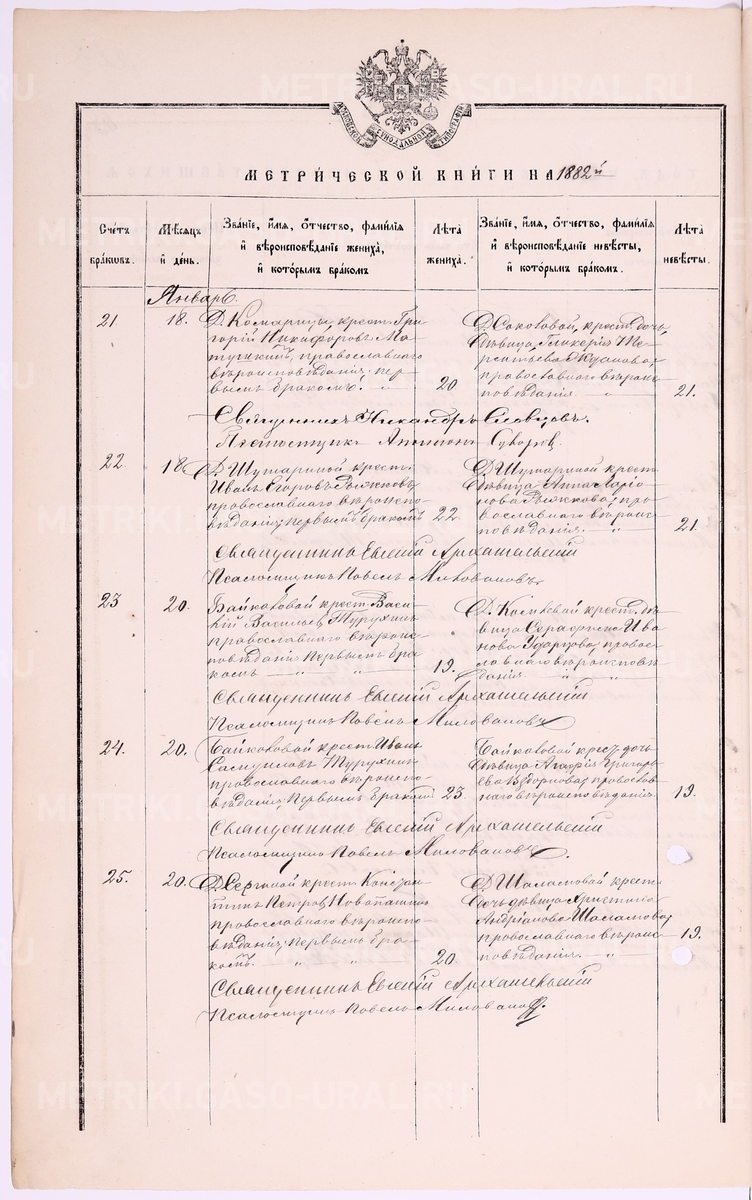 МОСКОВСКОЙ СѴНОДАЛЬНОЙ ТИПОГРАФІИ
МЕТРИ́ЧЕСКОЙ КНИ́ГИ НА 1882й
Сче́тъ бра́ковъ.
Мѣ́сяцъ и҆ де́нь.
Зва́нїе, и҆́мѧ, ѻ҆́тчество, фами́лїѧ и҆ вѣроисповѣ́данїе жениха̀, и҆ кото́рымъ бра́комъ
Лѣта̀ жениха̀.
Зва́нїе, и҆́мѧ, ѻ҆́тчество, фами́лїѧ и҆ вѣроисповѣ́данїе невѣ́сты, и҆ кото́рымъ бра́комъ.
Лѣта̀ невѣ́сты.
Январь.
21
18.
Д. Комарицы крест. Гри-
горій Никифоровъ
православнаго
вѣроисповѣданія, пер-
вымъ бракомъ. "
20
Д. Соколовой, крест. дочь
дѣвица Гликерія Те-
рентьева
православнаго вѣроис-
повѣданія "
21.
Священникъ Никандръ Словцовъ.
Псаломщикъ Антонин Суворов.
22
18.
Д. Шутариной крест.
Иванъ Егоровъ Рыжковъ
православнаго вѣроиспо-
вѣданія, первымъ бракомъ
22
Д. Шутариной крест.
дѣвица Анна Ларіо-
нова Рыжкова, пра-
вославнаго вѣроис-
повѣданія. "
21.
Священникъ Евгеній Архангельскій
Псаломщикъ Павелъ Миловановъ.
23
20.
Байкаловой крест. Васи-
лій Васильев Турухинъ
православнаго вѣроис-
повѣданія первымъ бра-
комъ " "
19.
Д. крест. дѣ-
вица Серафима Ива-
нова православ-
славнаго вѣроисповѣ-
данія " "
Священникъ Евгеній Архангельскій
Псаломщикъ Павелъ Миловановъ
24.
20.
Байкаловой крест. Иванъ
Самуиловъ Турухинъ
православнаго вѣроиспо-
вѣданія, первымъ бракомъ
23.
Байкаловой крест. дочь
дѣвица Агафія Григорь-
ева православ-
наго вѣроисповѣданія
19.
Священникъ Евгеній Архангельскій
Псаломщикъ Павелъ Миловановъ.
25.
20.
Д. Сергиной крест. Констан-
тинъ Петров
православнаго вѣроиспо-
вѣданія, первымъ бра-
комъ. " "
20
Д. Шаламовой крест.
дочь дѣвица Христина
Андріанова Шаламова,
православнаго вѣроис-
повѣданія. "
19.
Священникъ Евгеній Архангельскій
Псаломщикъ Павелъ Миловановъ.
METRIKI.GASO-URAL.RU